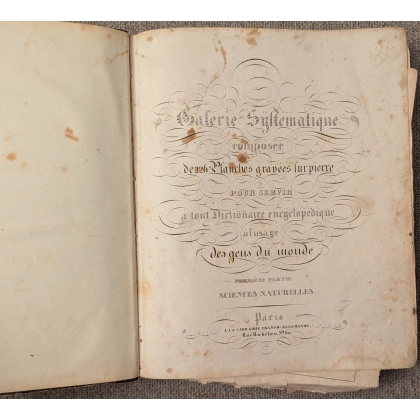 Galerie Systematique
composée
de 226 Planches gravées sur pierre
POUR SERVIR
a tout Dictionaire encyclopédique
al'usage
des gens du monde
PREMIÈRE PARTIE
SCIENCES NATURELLES
Paris
A LA LIBRAIRIE FRANCO-ALLEMANDE,
Rue Richelieu, N°